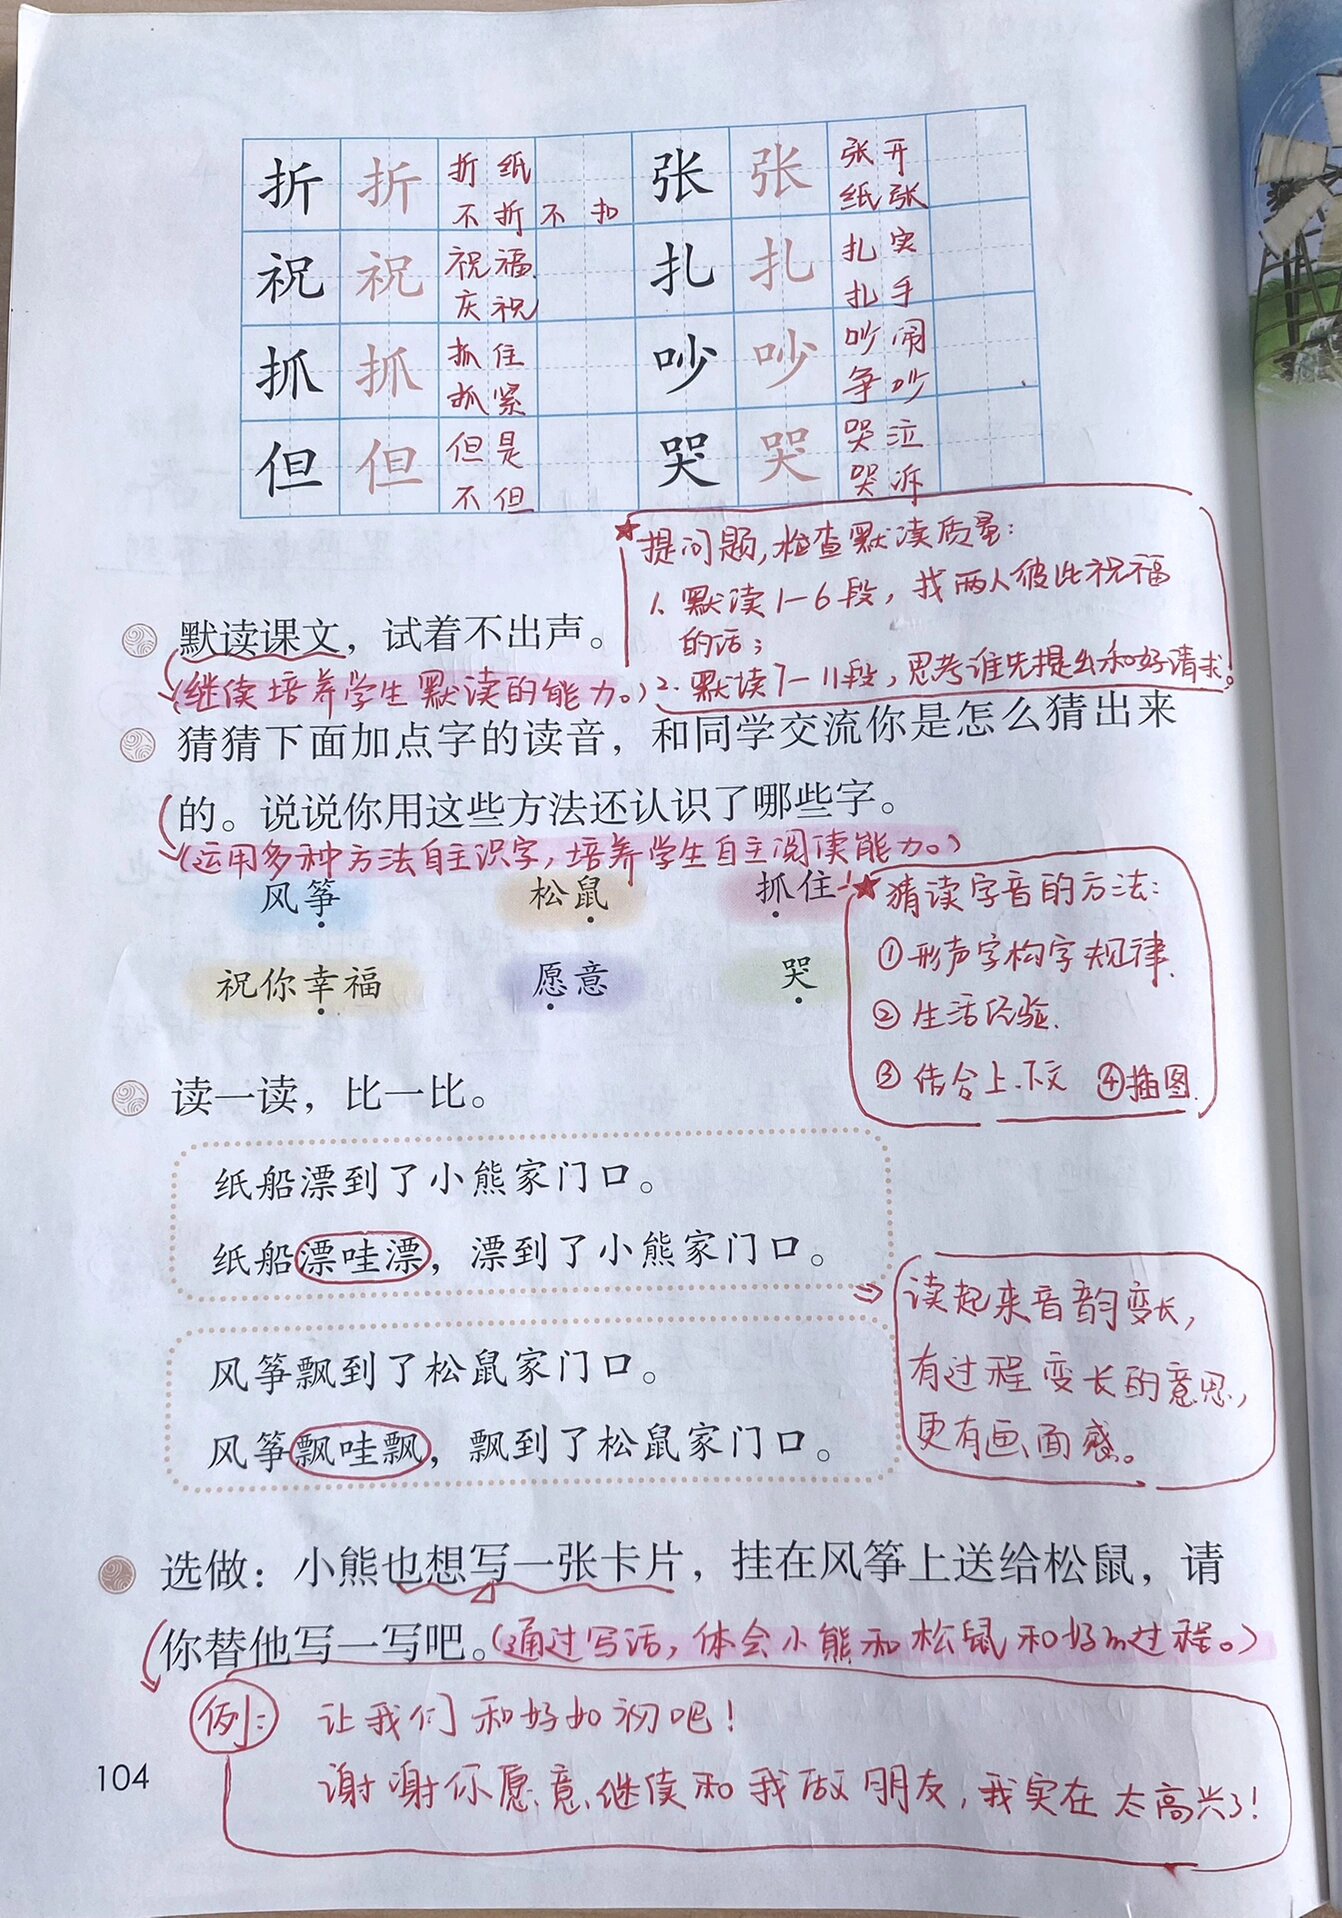 折 折 折纸 张 张 张开
不折不扣 纸张
祝 祝 祝福 扎 扎 扎实
庆祝 扎手
抓 抓 抓住 吵 吵 吵闹
抓紧 争吵
但 但 但是 哭 哭 哭泣
不但 哭诉
★提问题,检查默读质量:
1、默读1-6段,找两人彼此祝福
的话;
2.默读7-11段,思考谁先提出和好请求。
默读课文，试着不出声。
(继续培养学生默读的能力。)
猜猜下面加点字的读音，和同学交流你是怎么猜出来
的。说说你用这些方法还认识了哪些字。
(运用多种方法自主识字,培养学生自主阅读能力。)
风筝 松鼠 抓住
祝你幸福 愿意 哭
★猜读字音的方法:
①形声字构字规律.
②生活经验.
③结合上下文 ④插图.
读一读，比一比。
纸船漂到了小熊家门口。
纸船漂哇漂，漂到了小熊家门口。
风筝飘到了松鼠家门口。
风筝飘哇飘，飘到了松鼠家门口。
⇒读起来音韵变长,
有过程变长的意思,
更有画面感。
选做：小熊也想写一张卡片，挂在风筝上送给松鼠，请
你替他写一写吧。(通过写话,体会小熊和松鼠和好的过程。)
例: 让我们和好如初吧!
谢谢你愿意继续和我做朋友,我实在太高兴了!
104